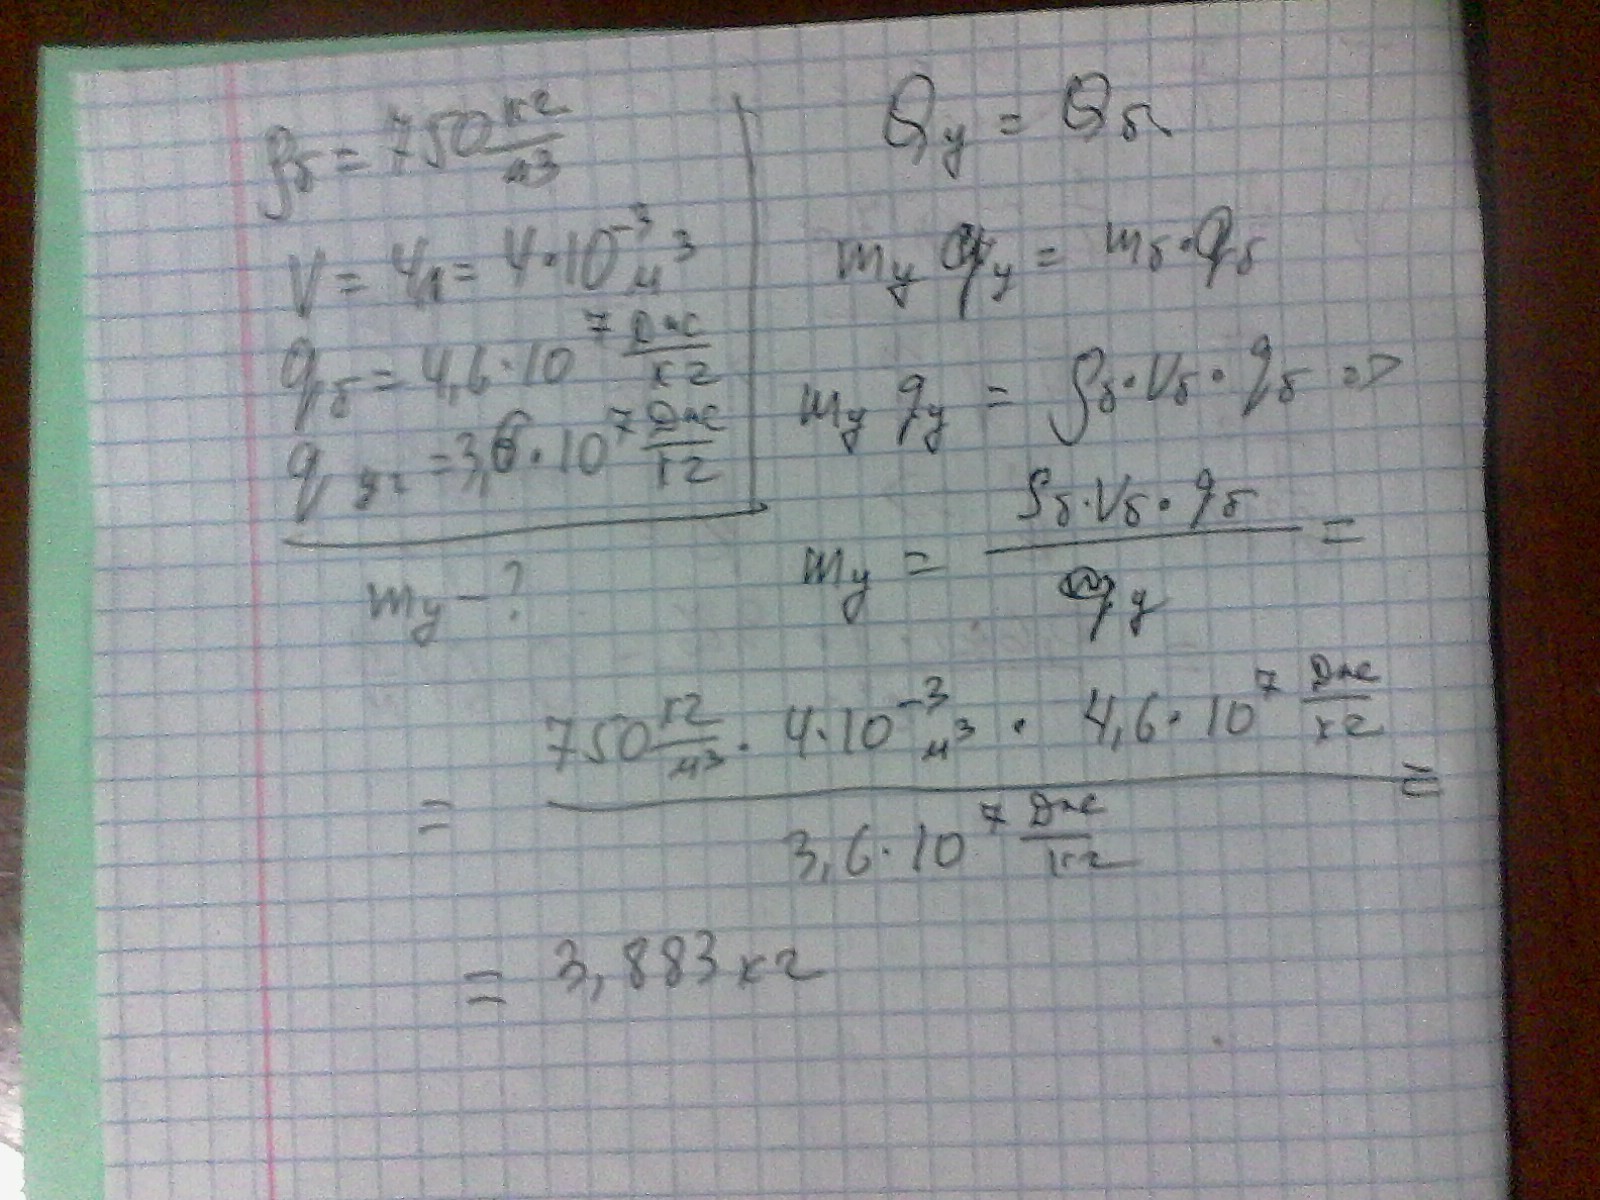 ρб = 750 кг/м3
V = 4л = 4·10⁻³ м³
qб = 4,6·10⁷ Дж/кг
q уг = 3,6·10⁷ Дж/кг
mу – ?
Qу = Qб
mу qу = mб·qб
mу qу = ρб·Vб·qб =>
mу = ρб·Vб·qб / qу =
= 750 кг/м3 · 4·10⁻³ м³ · 4,6·10⁷ Дж/кг / 3,6·10⁷ Дж/кг =
= 3,883 кг